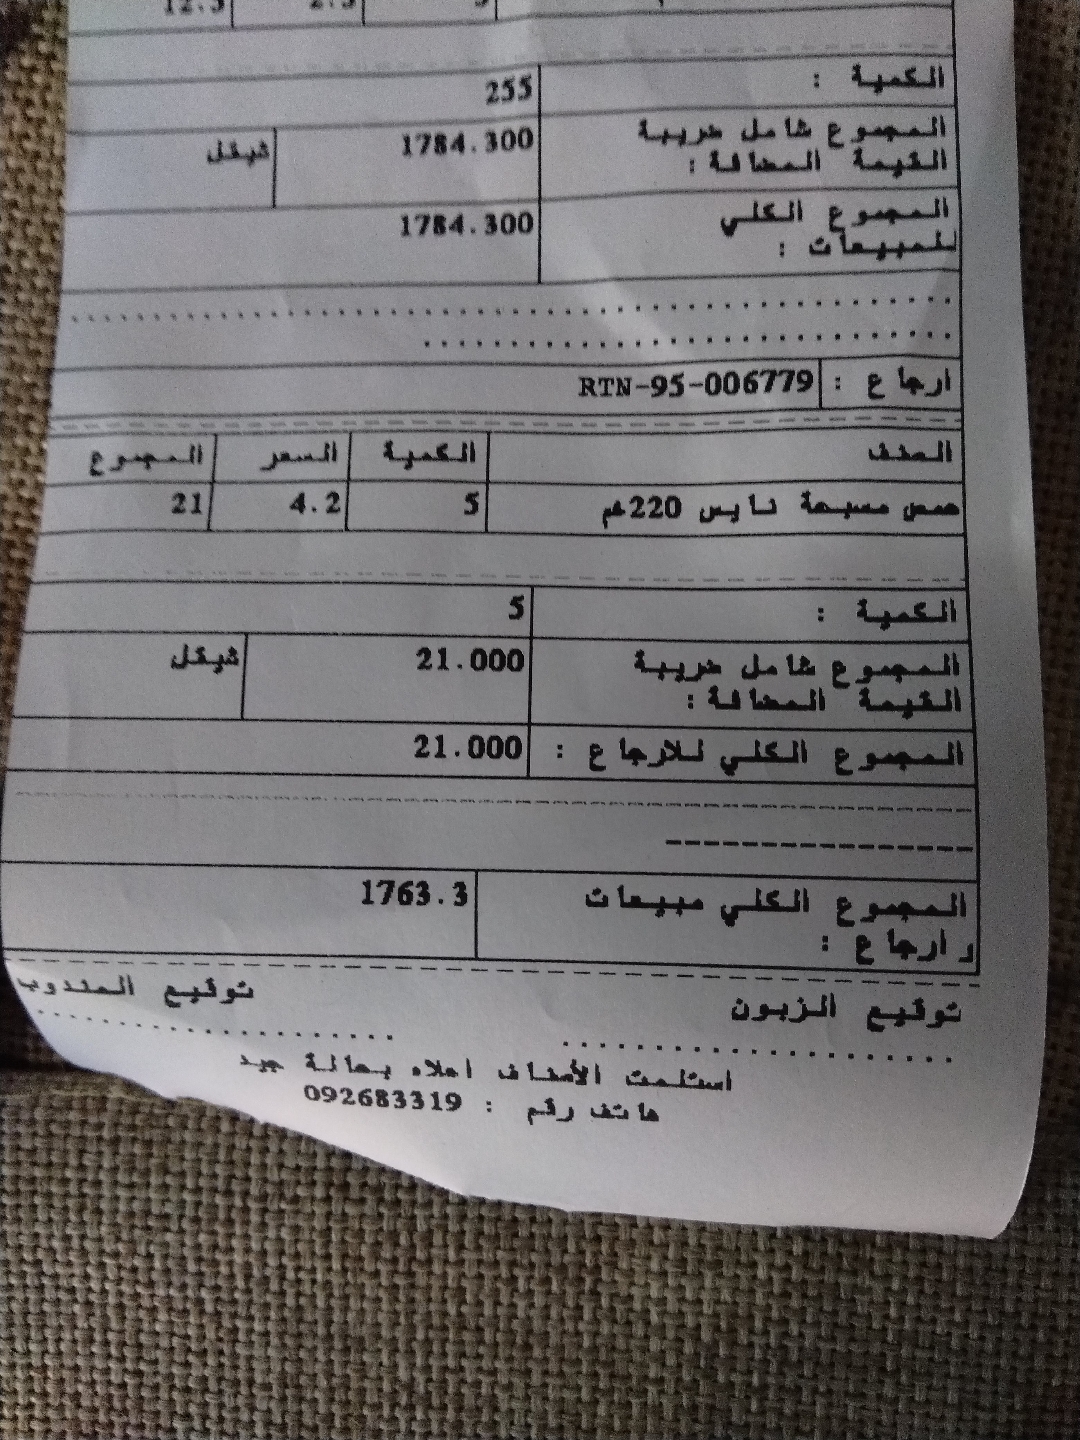 5 2.5 12.5
الكمية : 255
المجموع شامل ضريبة
القيمة المضافة : 1784.300 شيقل
المجموع الكلي
للمبيعات : 1784.300
ارجاع : RTN-95-006779
الصنف الكمية السعر المجموع
حمص مسبحة نايس 220غم 5 4.2 21
الكمية : 5
المجموع شامل ضريبة
القيمة المضافة : 21.000 شيقل
المجموع الكلي للارجاع : 21.000
المجموع الكلي مبيعات
و ارجاع : 1763.3
توقيع الزبون توقيع المندوب
استلمت الأصناف اعلاه بحالة جيد
هاتف رقم : 092683319